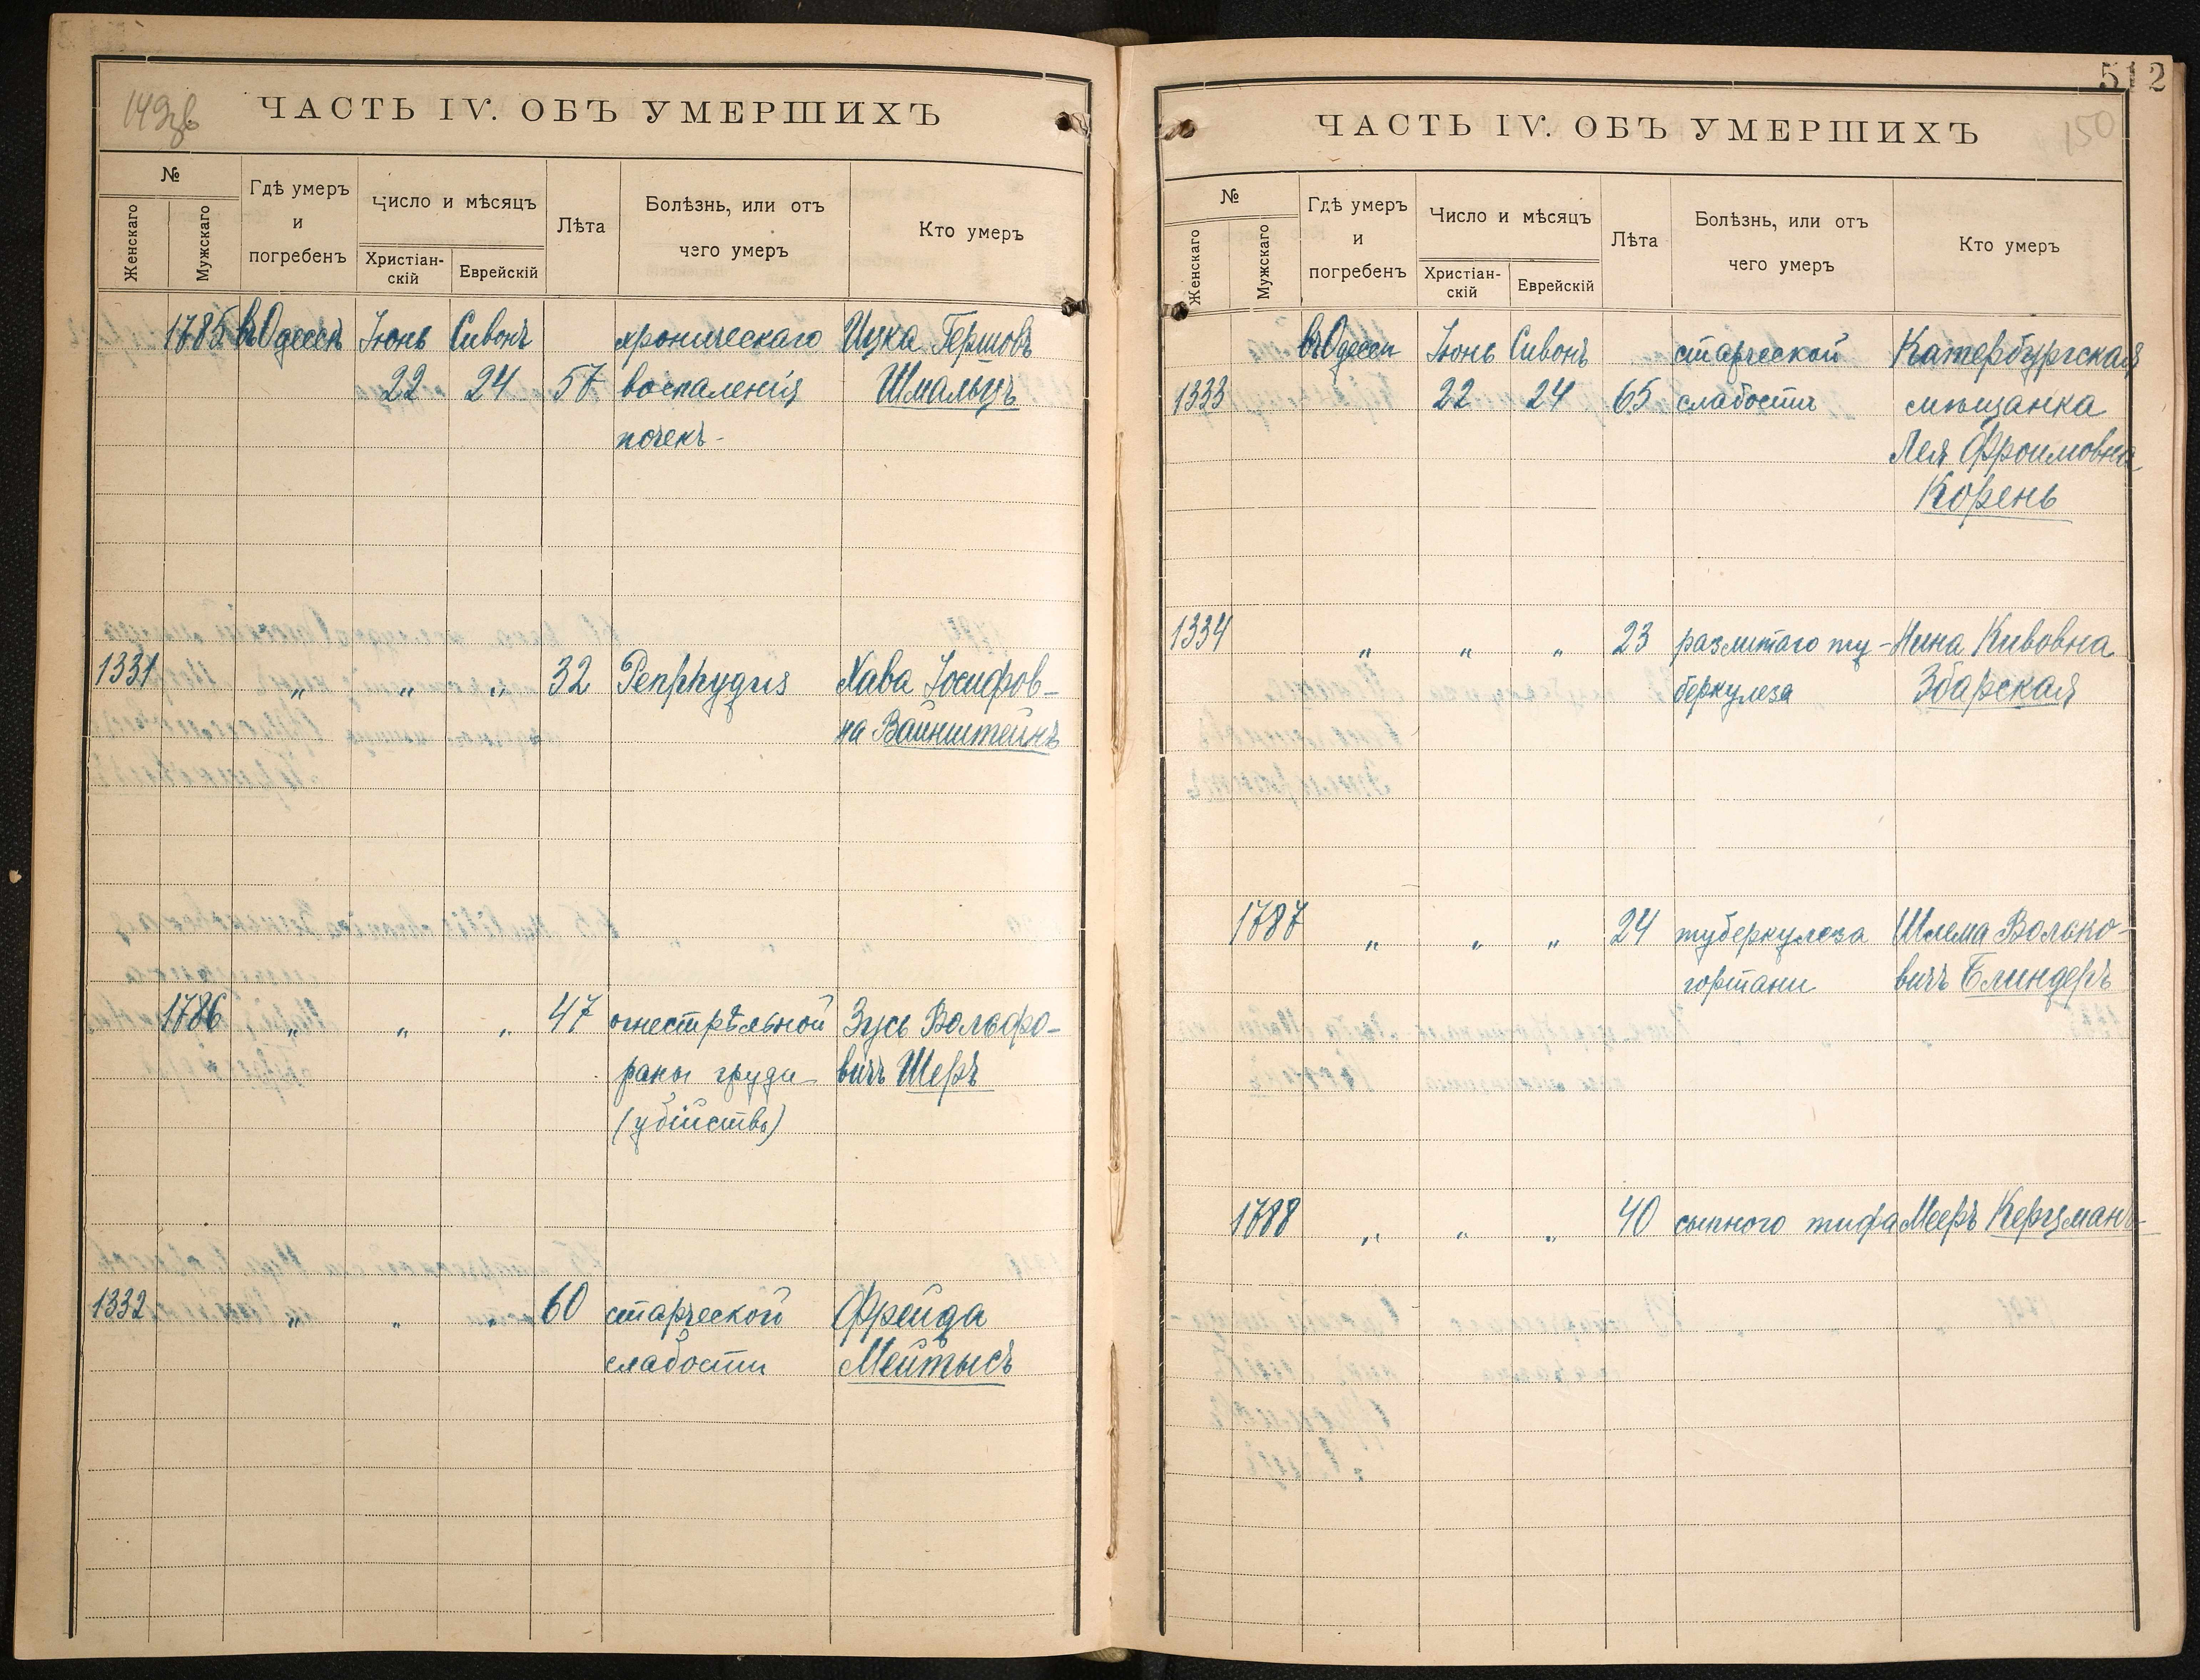 149об
ЧАСТЬ IV. ОБЪ УМЕРШИХЪ
№
Женскаго
Мужскаго
Гдѣ умеръ
и
погребенъ
Число и мѣсяцъ
Христіан-
скій
Еврейскій
Лѣта
Болѣзнь, или отъ
чего умеръ
Кто умеръ
1785 въ Одессѣ Іюнь Сивонъ хроническаго Ицка Гершовъ
22 24 57 воспаленія Шмальцъ
почекъ-
1331 " " " 32 Penphygus Хава Іосифов-
на Вайнштейнъ
1786 " " " 47 огнестрѣльной Зусь Вольфо-
раны груди вичъ Шеръ
(убійство)
1332 " " " 60 старческой Фрейда
слабости Мейтысъ
512
150
ЧАСТЬ IV. ОБЪ УМЕРШИХЪ
№
Женскаго
Мужскаго
Гдѣ умеръ
и
погребенъ
Число и мѣсяцъ
Христіан-
скій
Еврейскій
Лѣта
Болѣзнь, или отъ
чего умеръ
Кто умеръ
въ Одессѣ Іюнь Сивонъ старческой Катербургская
1333 22 24 65 слабости мѣщанка
Лея Фроимовна
Корень
1334 " " " 23 разлитаго ту- Нина Кивовна
беркулеза Збарская
1787 " " " 24 туберкулеза Шлема Волько-
гортани вичъ Блиндеръ
1788 " " " 40 сыпного тифа Мееръ Керцманъ